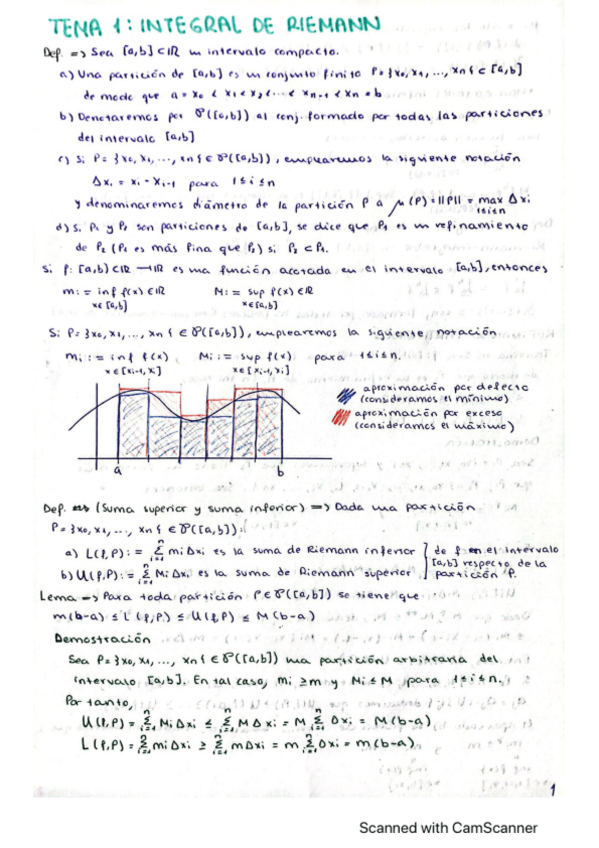 TEMA 1: INTEGRAL DE RIEMANN
Def. => Sea [a,b] ⊂ ℝ un intervalo compacto.
a) Una partición de [a,b] es un conjunto finito P = {x0, x1, ..., xn} ⊂ [a,b]
de modo que a = x0 < x1 < x2 < ... < xn-1 < xn = b
b) Denotaremos por 𝒫([a,b]) al conj. formado por todas las particiones
del intervalo [a,b]
c) Si P = {x0, x1, ..., xn} ∈ 𝒫([a,b]), emplearemos la siguiente notación
Δxi = xi - xi-1 para 1≤i≤n
y denominaremos diámetro de la partición P a μ(P) = ||P|| = max Δxi
1≤i≤n
d) si P1 y P2 son particiones de [a,b], se dice que P1 es un refinamiento
de P2 (P1 es más fina que P2) si P2 ⊂ P1.
Si f: [a,b] ⊂ ℝ → ℝ es una función acotada en el intervalo [a,b], entonces
m := inf f(x) ∈ ℝ M := sup f(x) ∈ ℝ
x∈[a,b] x∈[a,b]
Si P = {x0, x1, ..., xn} ∈ 𝒫([a,b]), emplearemos la siguiente notación
mi := inf f(x) Mi := sup f(x) para 1≤i≤n.
x∈[xi-1, xi] x∈[xi-1, xi]
aproximación por defecto
(consideramos el mínimo)
aproximación por exceso
(consideramos el máximo)
a b
Def. => (Suma superior y suma inferior) => Dada una partición
P = {x0, x1, ..., xn} ∈ 𝒫([a,b]):
a) L(f,P) := Σ_{i=1}^{n} mi Δxi es la suma de Riemann inferior } de f en el intervalo
[a,b] respecto de la
b) U(f,P) := Σ_{i=1}^{n} Mi Δxi es la suma de Riemann superior } partición P.
Lema => Para toda partición P ∈ 𝒫([a,b]) se tiene que
m(b-a) ≤ L(f,P) ≤ U(f,P) ≤ M(b-a)
Demostración
Sea P = {x0, x1, ..., xn} ∈ 𝒫([a,b]) una partición arbitraria del
intervalo [a,b]. En tal caso, mi ≥ m y Mi ≤ M para 1≤i≤n.
Por tanto,
U(f,P) = Σ_{i=1}^{n} Mi Δxi ≤ Σ_{i=1}^{n} M Δxi = M Σ_{i=1}^{n} Δxi = M(b-a)
L(f,P) = Σ_{i=1}^{n} mi Δxi ≥ Σ_{i=1}^{n} m Δxi = m Σ_{i=1}^{n} Δxi = m(b-a)
1
Scanned with CamScanner